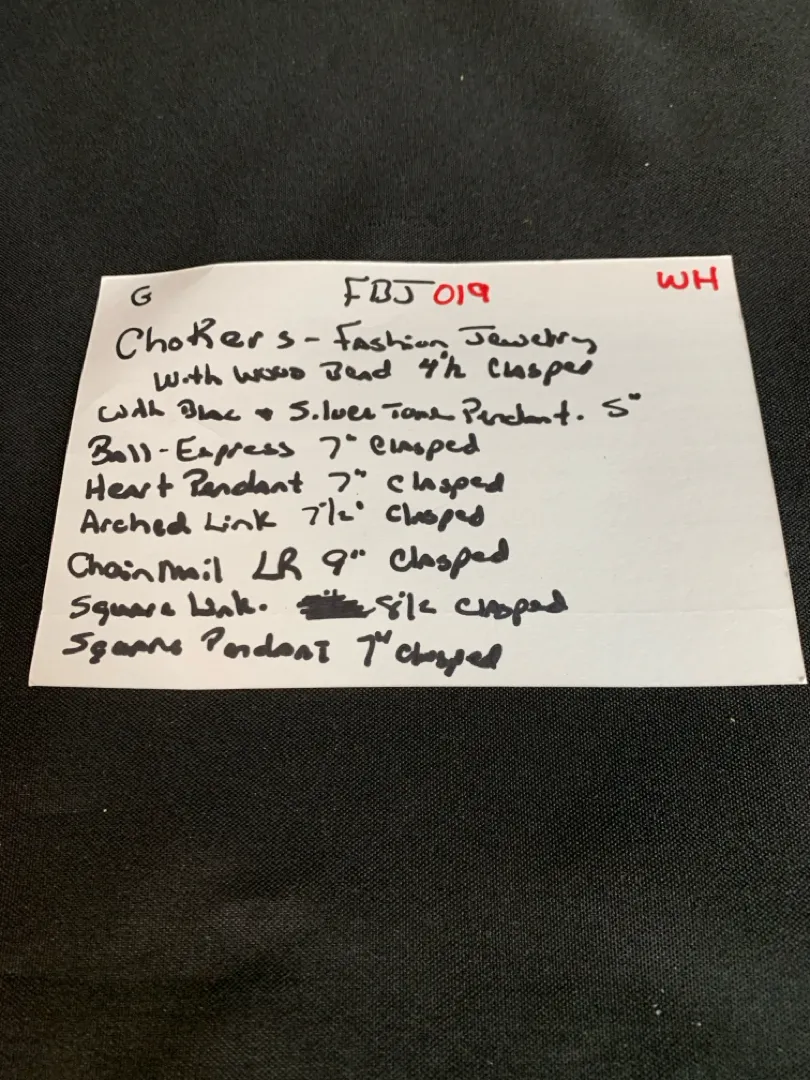 G FBJ 019 WH
Chokers - Fashion Jewelry
With Wood Bead 4 1/2" Clasped
With Blue + Silver Tone Pendant. 5"
Ball-Express 7" Clasped
Heart Pendant 7" Clasped
Arched Link 7 1/2" Clasped
Chain Mail LR 9" Clasped
Square Link. 8 1/2 Clasped
Square Pendant 7" Clasped